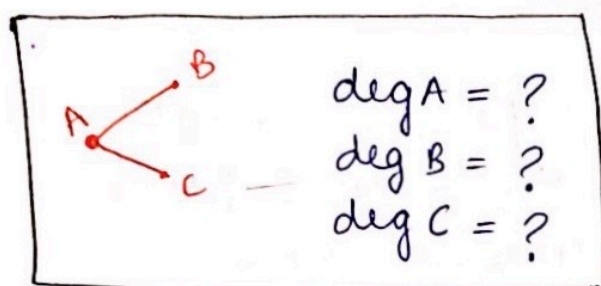 B
A
C
deg A = ?
deg B = ?
deg C = ?